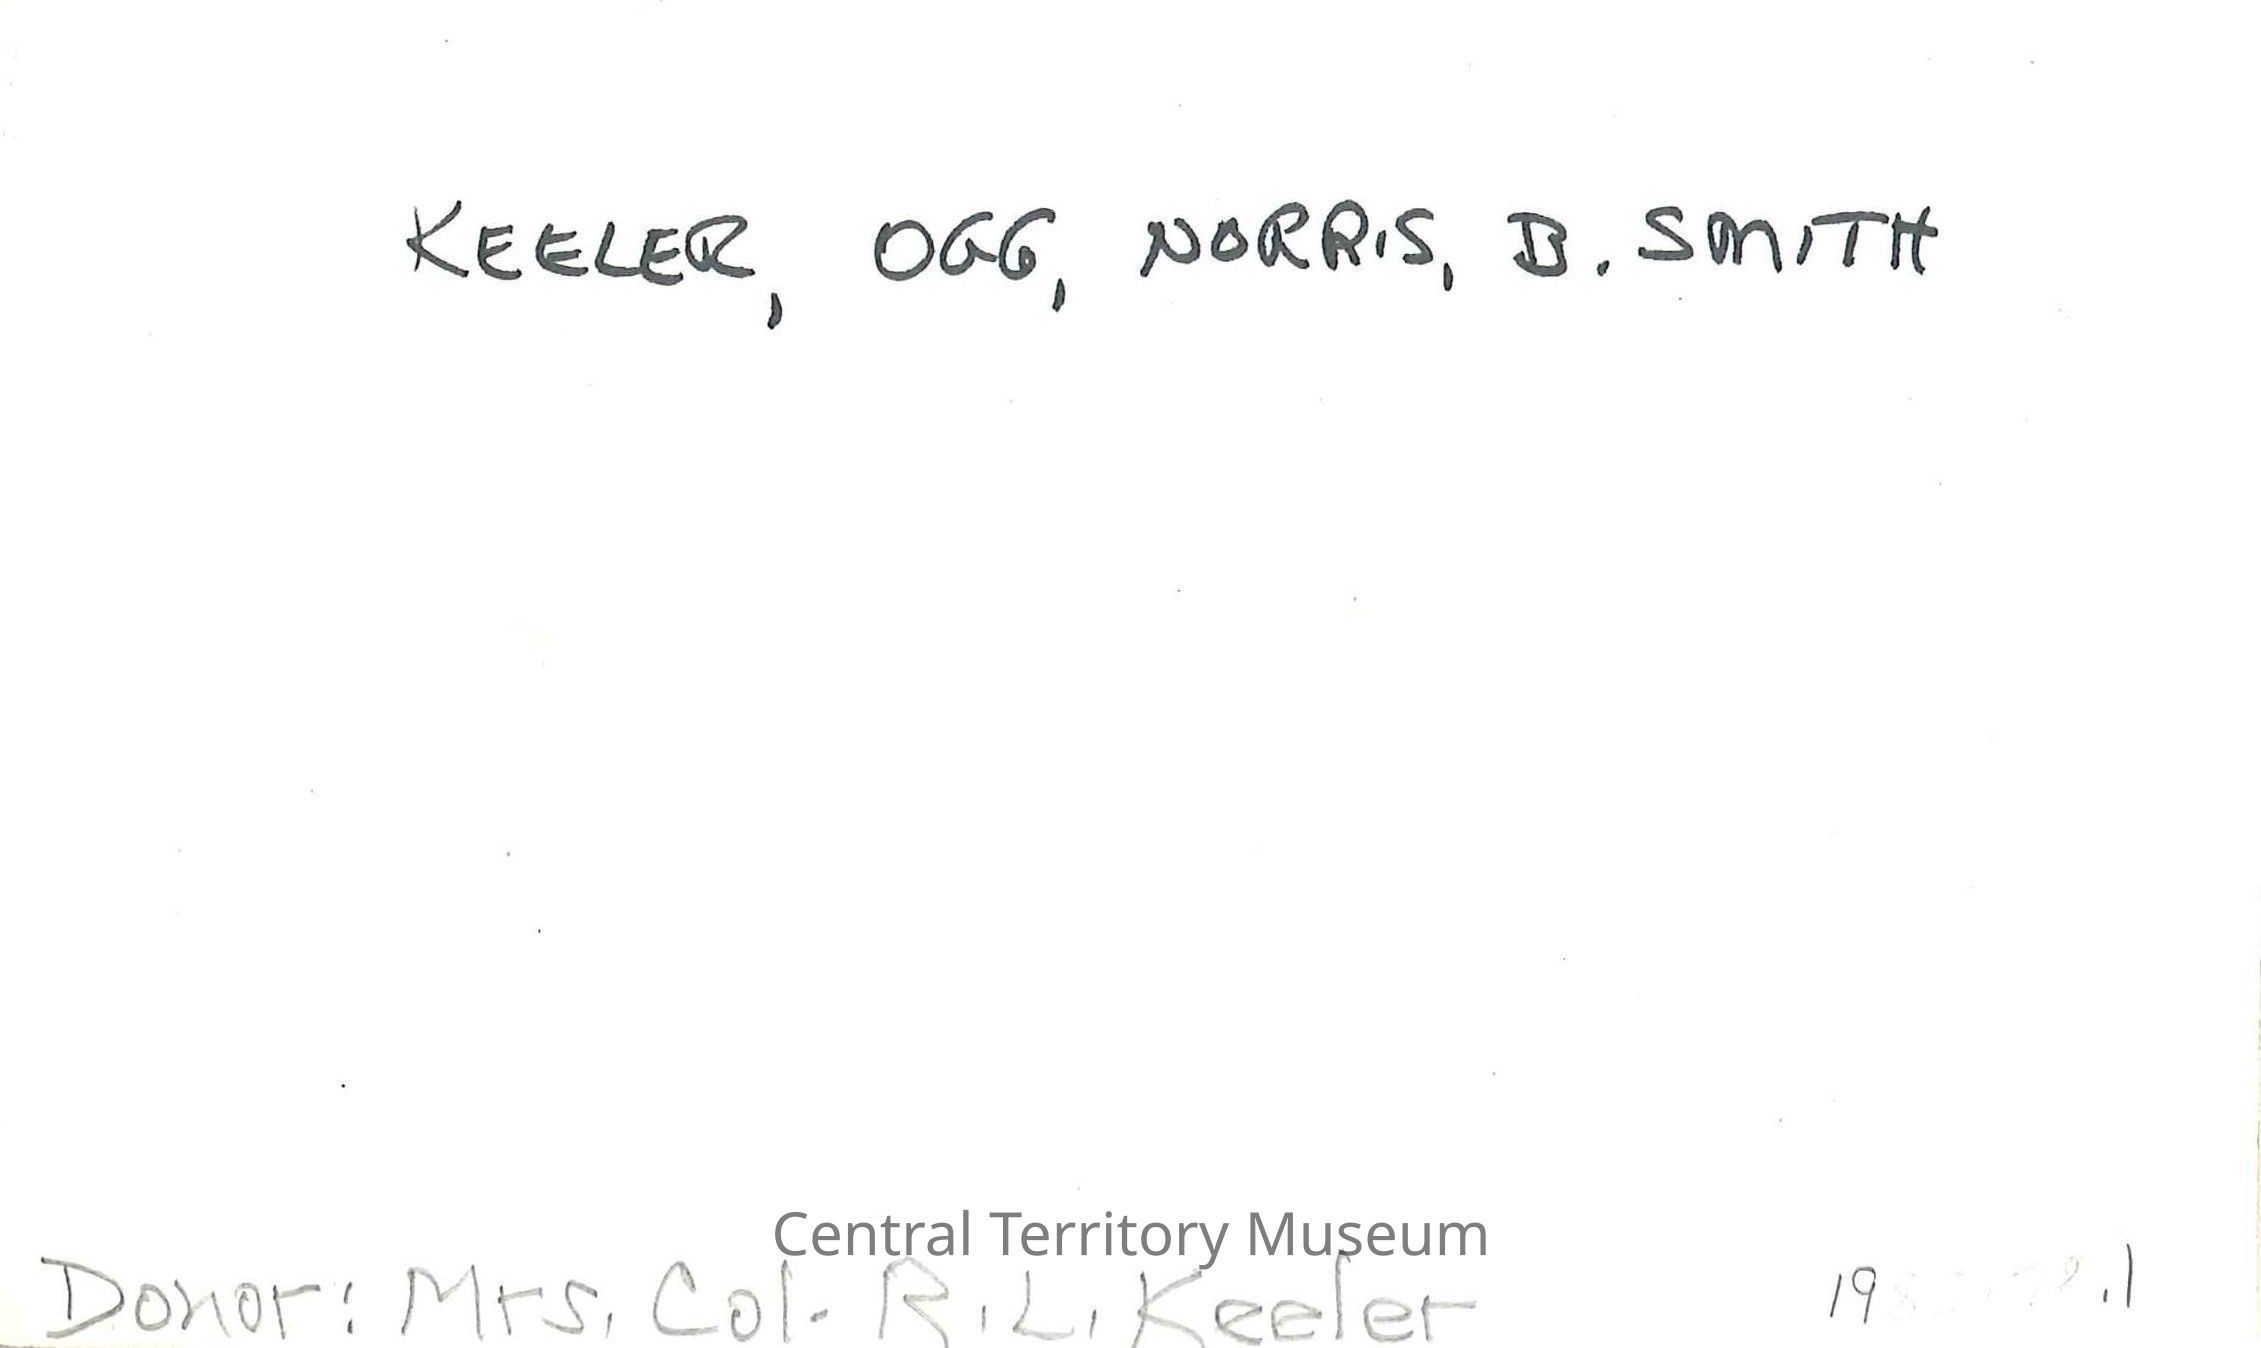 KEELER, OGG, NORRIS, B. SMITH
Central Territory Museum
Donor: Mrs. Col. R.L. Keeler